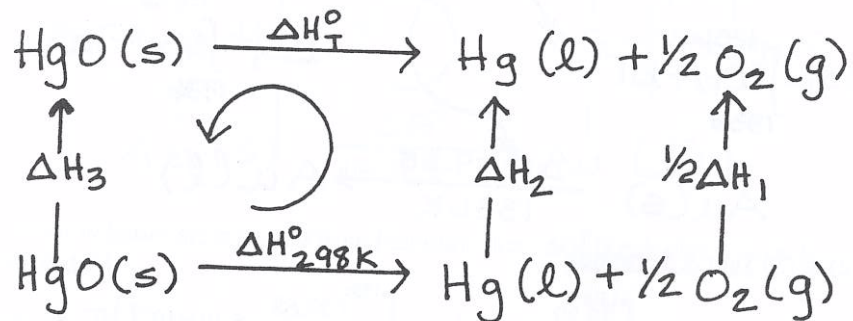 HgO(s) ΔH°T Hg(l) + ½ O₂(g)
ΔH₃ ΔH₂ ½ΔH₁
HgO(s) ΔH°298K Hg(l) + ½ O₂(g)